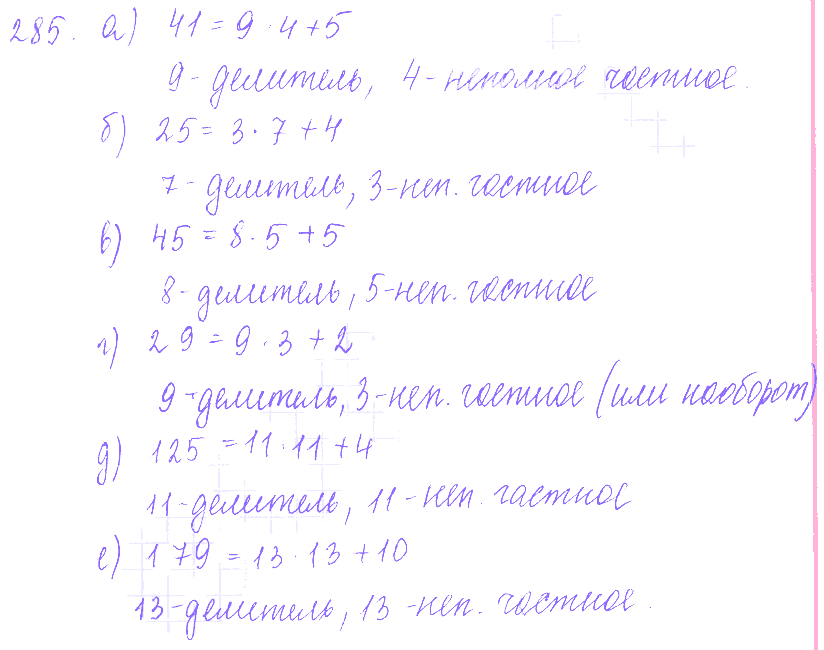 285. а) 41 = 9 · 4 + 5
9 - делитель, 4 - неполное частное.
б) 25 = 3 · 7 + 4
7 - делитель, 3 - неп. частное
в) 45 = 8 · 5 + 5
8 - делитель, 5 - неп. частное
г) 29 = 9 · 3 + 2
9 - делитель, 3 - неп. частное (или наоборот)
д) 125 = 11 · 11 + 4
11 - делитель, 11 - неп. частное
е) 179 = 13 · 13 + 10
13 - делитель, 13 - неп. частное.